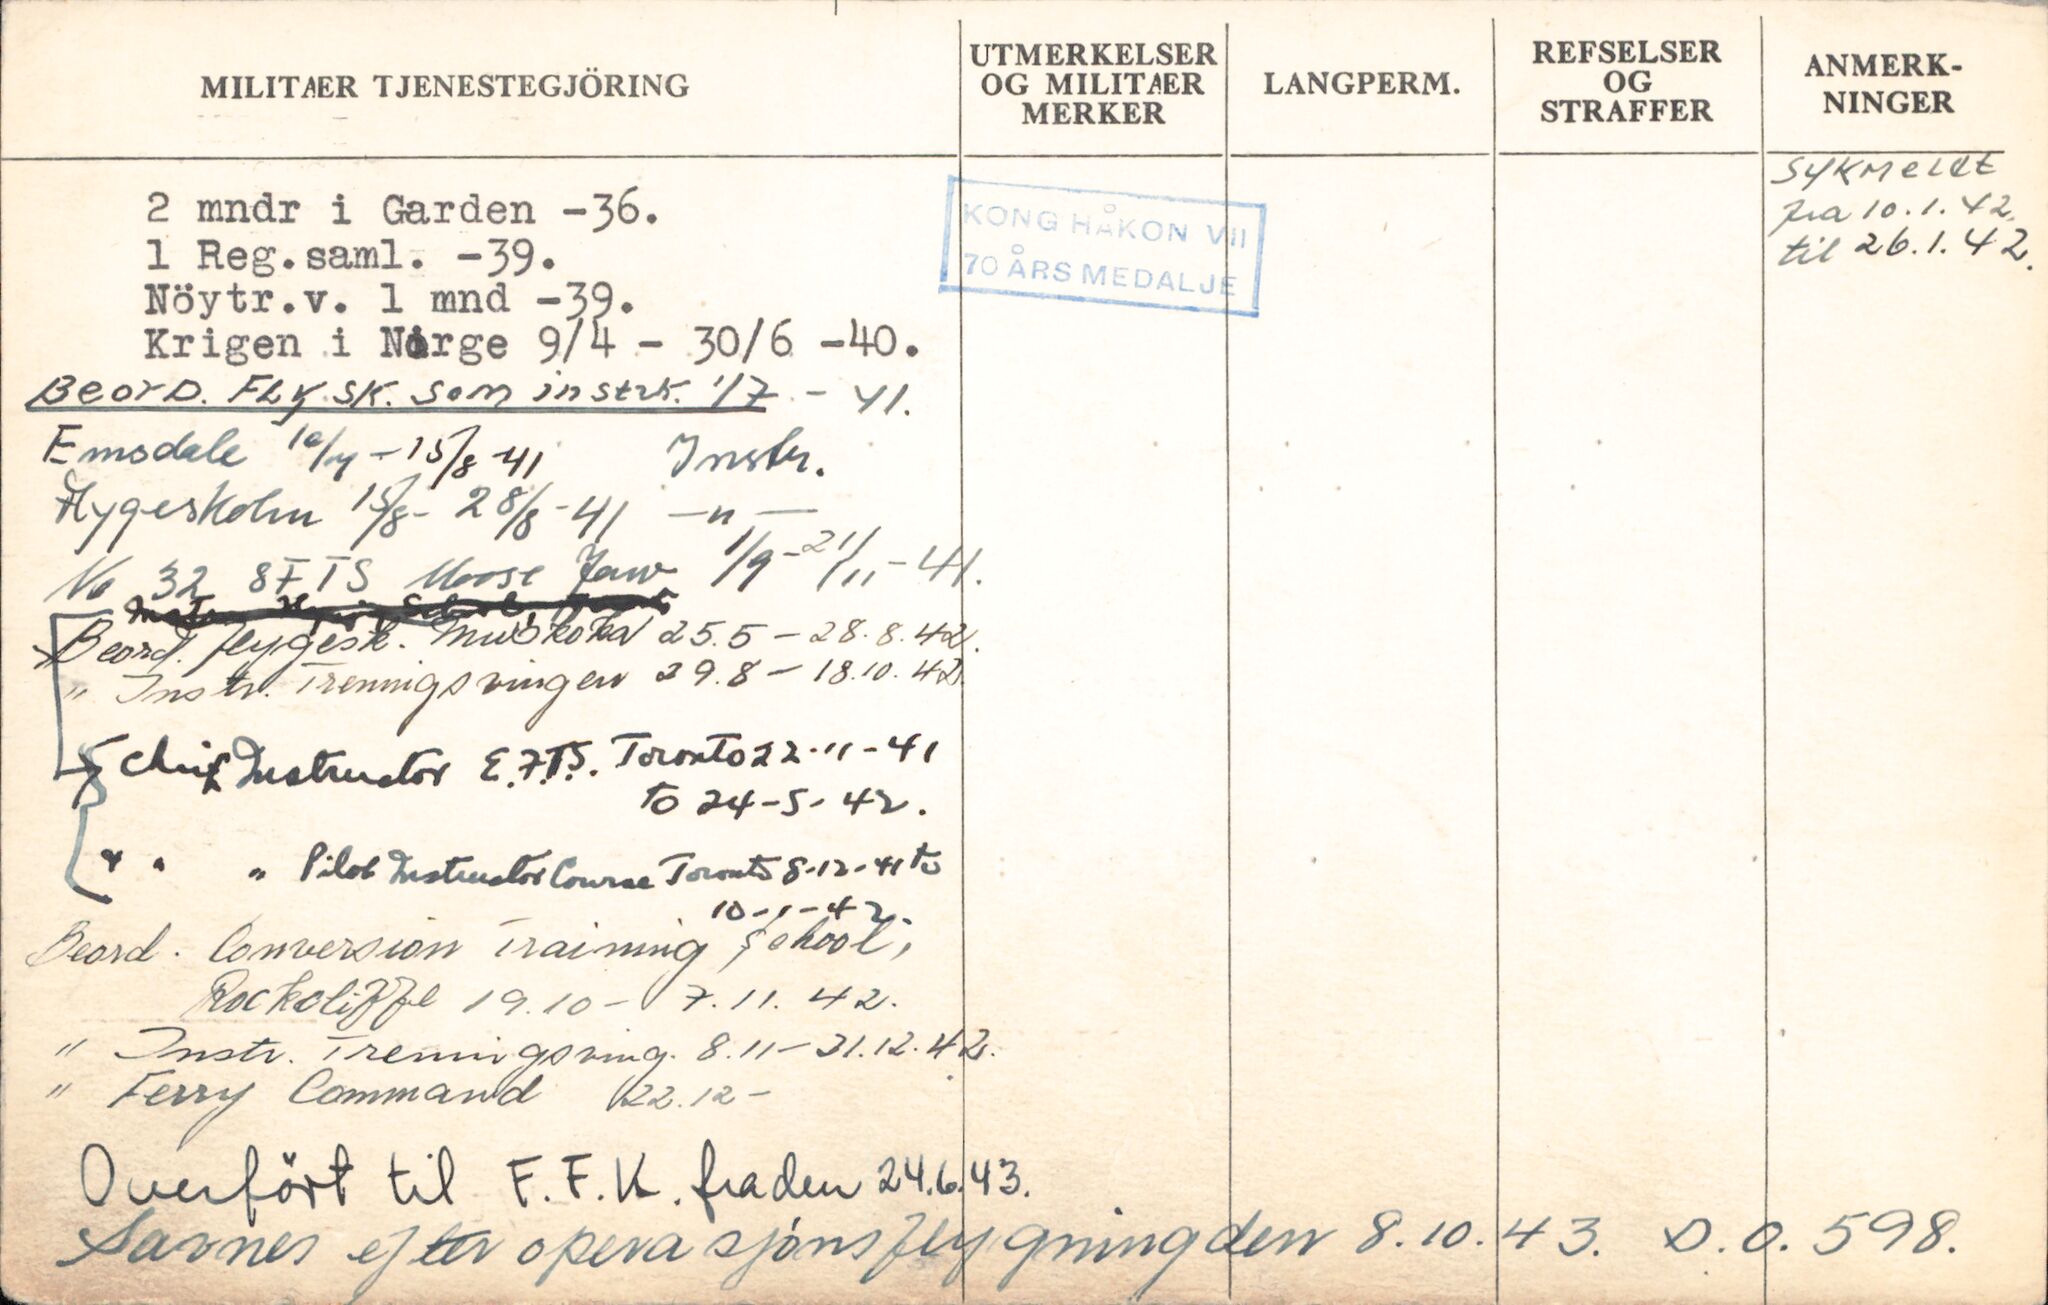 MILITÆR TJENESTEGJÖRING
UTMERKELSER
OG MILITÆR
MERKER
LANGPERM.
REFSELSER
OG
STRAFFER
ANMERK-
NINGER
2 mndr i Garden -36.
1 Reg.saml. -39.
Nöytr.v. 1 mnd -39.
Krigen i Norge 9/4 - 30/6 -40.
Beord. Fly.sk. som instrk. 1/7 - 41.
Emsdale 10/4 - 15/8 - 41 Instr.
Flygeskolen 15/8 - 28/8 - 41 — " —
No 32 SFTS Moose Jaw 1/9 - 21/11 - 41.
Beord. flygesk. Muskoka 25.5 - 28.8.42.
" Instr. Treningsvingen 29.8 - 18.10.42.
Chief Instructor E.F.T.S. Toronto 22-11-41
to 24-5-42.
" " " Pilot Instructor Course Toronto 8-12-41 to
10-1-42.
Beord. Conversion Training School,
Rockcliffe 19.10 - 7.11.42.
" Instr. Treningsving. 8.11 - 21.12.42.
" Ferry Command 22.12 -
Overfört til F.F.K. fra den 24.6.43.
Savnes efter operasjonsflygning den 8.10.43. D.O. 598.
KONG HÅKON VII
70 ÅRS MEDALJE
Sykmeldt
fra 10.1.42.
til 26.1.42.